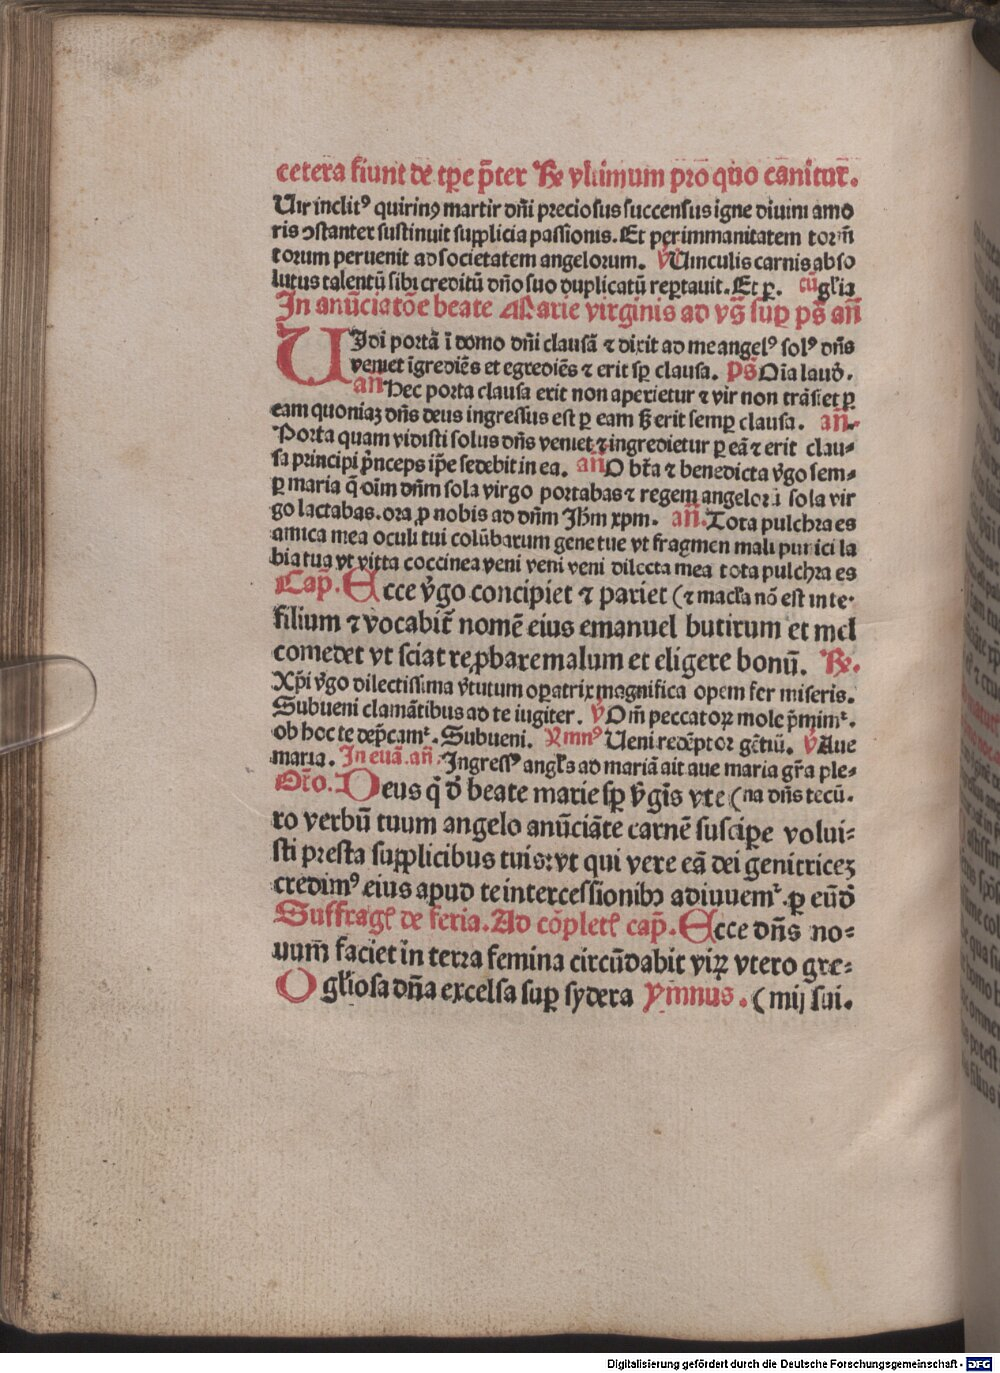 cetera fiunt de tp̄e p̄ter ℟ vltimum pro quo canitur̄.
Uir inclitꝰ quirinꝰ martir dn̄i preciosus succensus igne diuini amo
ris ↄstanter sustinuit supplicia passionis. Et per immanitatem torm̄
torum peruenit ad societatem angelorum. ℣ Uinculis carnis abso
lutus talentū sibi creditū dn̄o suo duplicatū reportauit. Et ꝑ. cū gl̄ia
In anūciatōe beate Marie virginis ad vꝭ̄ sup̄ pꝭ̄ an̄
UJdi portā ī domo dn̄i clausā ⁊ dixit ad me angelꝰ solꝰ dn̄s
veniet īgrediēs et egrediēs ⁊ erit sp̄ clausa. ps̄ Oīa laud̄.
an̄ Hec porta clausa erit non aperietur ⁊ vir non trāsiet ꝑ
eam quoniaꝫ dn̄s deus ingressus est ꝑ eam ⁊ erit semꝑ clausa. an̄.
Porta quam vidisti solus dn̄s veniet ⁊ ingredietur ꝑ eā ⁊ erit clau-
sa principi p̄nceps ip̄e sedebit in ea. an̄ O bt̄a ⁊ benedicta v̓go sem-
ꝑ maria q̄ oīm dn̄m sola virgo portabas ⁊ regem angeloꝝ sola vir
go lactabas. ora ꝓ nobis ad dn̄m Jhm̄ xpm̄. an̄. Tota pulchra es
amica mea oculi tui colūbarum gene tue vt fragmen mali punici la
bia tua vt vitta coccinea veni veni veni dilecta mea tota pulchra es
Cap̄. Ecce v̓go concipiet ⁊ pariet (⁊ macl̄a nō est in te.
filium ⁊ vocabit̄ nomē eius emanuel butirum et mel
comedet vt sciat reꝓbare malum et eligere bonū. ℟.
Xp̄i v̓go dilectissima v̓tutum operatrix magnifica opem fer miseris.
Subueni clamātibus ad te iugiter. ℣ Om̄ peccatoꝝ mole p̄mimᷣ.
ob hoc te dep̄camᷣ. Subueni. Ymnꝰ Ueni redēptor gētiū. ℣ Aue
maria. In euā. an̄. Ingressꝰ angl̄s ad mariā ait aue maria gr̄a ple-
Or̄o. Deus q̇ d̄ beate marie sp̄ v̓gīs vte (na dn̄s tecū.
ro verbū tuum angelo anūciāte carnē suscipe volui-
sti presta supplicibus tuis: vt qui vere eā dei genitriceꝫ
credimꝰ eius apud te intercessionibꝫ adiuuemᷣ. ꝑ eūd̄
Suffragꝭ de feria. Ad cōpletꝭ cap̄. Ecce dn̄s no-
uum̄ faciet in terra femina circūdabit viꝝ vtero gre-
O gl̄iosa dn̄a excelsa supꝭ sydera Ymnus. (mij sui.
Digitalisierung gefördert durch die Deutsche Forschungsgemeinschaft - DFG